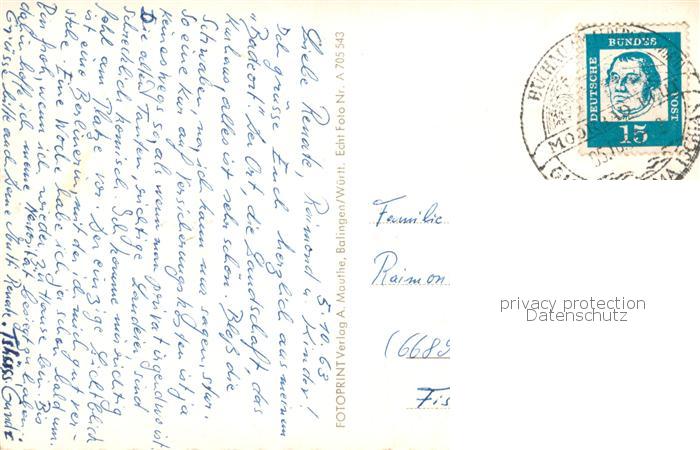 5.10.63
Liebe Renate, Raimond u. Kinder!
Ich grüsse Euch herzlich aus meinem
"Badeort". Der Ort, die Landschaft, das
Kurhaus, alles ist sehr schön. Bloß die
Schwaben, na, ich kann nur sagen, stur.
So eine Kur auf Versicherungskosten ist ja
keineswegs so, als wenn man privat irgendwo ist
Die alten Tanten, richtige Landeier sind
schrecklich komisch. Ich komme mir richtig
fehl am Platze vor. Der einzige Lichtblick
ist eine Berlinerin, mit der ich mich gut ver-
stehe. Eine Woche habe ich ja schon bald um.
Bin froh, wenn ich wieder zu Hause bin. Bis
dahin hoffe ich meine Nervosität besiegt zu haben.
Grüsse bitte auch Deine Mutti Renate. Tschüss Gunde
FOTOPRINT Verlag A. Mauthe, Balingen/Württ. Echt Foto Nr. A 705 543
DEUTSCHE
BUNDES
POST
15
MOOR
Familie
Raimon
(6689
Fis
privacy protection
Datenschutz